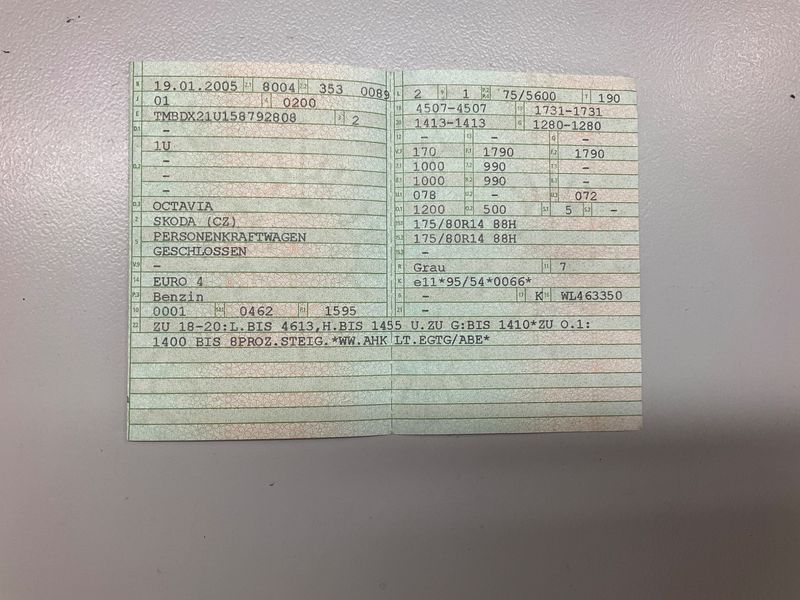 19.01.2005 8004 353 0089
01 0200
TMBDX21U158792808 2
-
1U
-
-
-
OCTAVIA
SKODA (CZ)
PERSONENKRAFTWAGEN
GESCHLOSSEN
-
EURO 4
Benzin
0001 0462 1595
2 1 75/5600 190
4507-4507 1731-1731
1413-1413 1280-1280
- - -
170 1790 1790
1000 990 -
1000 990 -
078 - 072
1200 500 5 -
175/80R14 88H
175/80R14 88H
-
Grau 7
e11*95/54*0066*
- K WL463350
-
ZU 18-20:L.BIS 4613,H.BIS 1455 U.ZU G:BIS 1410*ZU O.1:
1400 BIS 8PROZ.STEIG.*WW.AHK LT.EGTG/ABE*